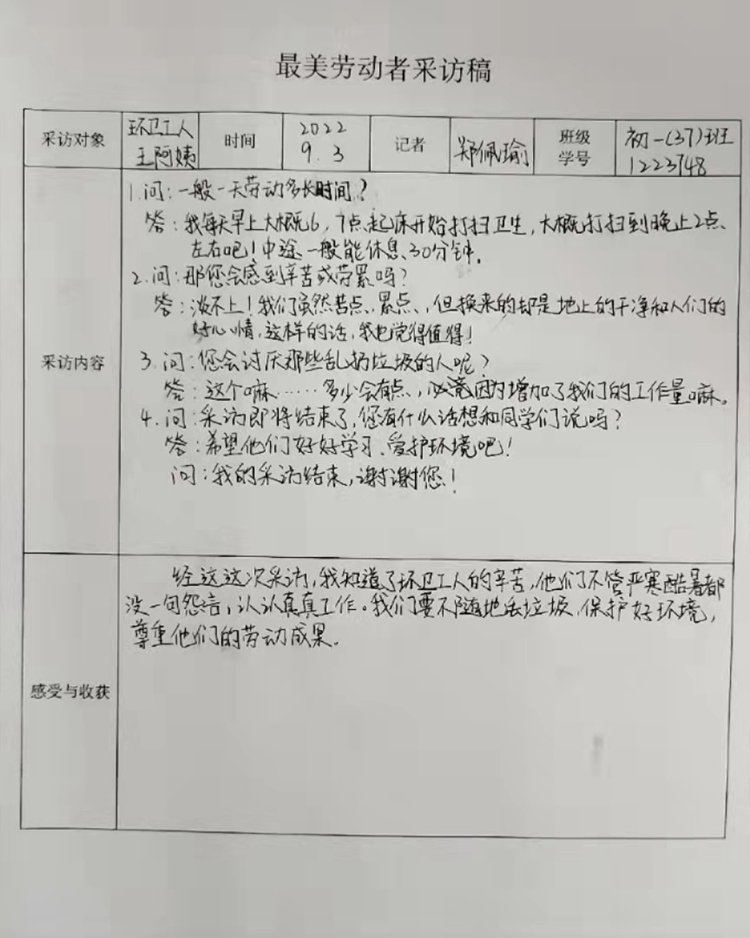 最美劳动者采访稿
采访对象 环卫工人王阿姨 时间 2022 9.3 记者 郑佩瑜 班级学号 初一(37)班 1223748
采访内容
1.问:一般一天劳动多长时间?
答:我每天早上大概6,7点起床开始打扫卫生,大概打扫到晚上2点
左右吧!中途一般能休息30分钟。
2.问:那您会感到辛苦或劳累吗?
答:谈不上!我们虽然苦点、累点、,但换来的却是地上的干净和人们的
好心情,这样的话,我也觉得值得!
3.问:您会讨厌那些乱扔垃圾的人呢?
答:这个嘛……多少会有点、,必竟因为增加了我们的工作量嘛。
4.问:采访即将结束了,您有什么话想和同学们说吗?
答:希望他们好好学习、爱护环境吧!
问:我的采访结束,谢谢您!
感受与收获
经这这次采访,我知道了环卫工人的辛苦,他们不管严寒酷暑都
没一句怨言,认认真真工作。我们要不随地丢垃圾,保护好环境,
尊重他们的劳动成果。